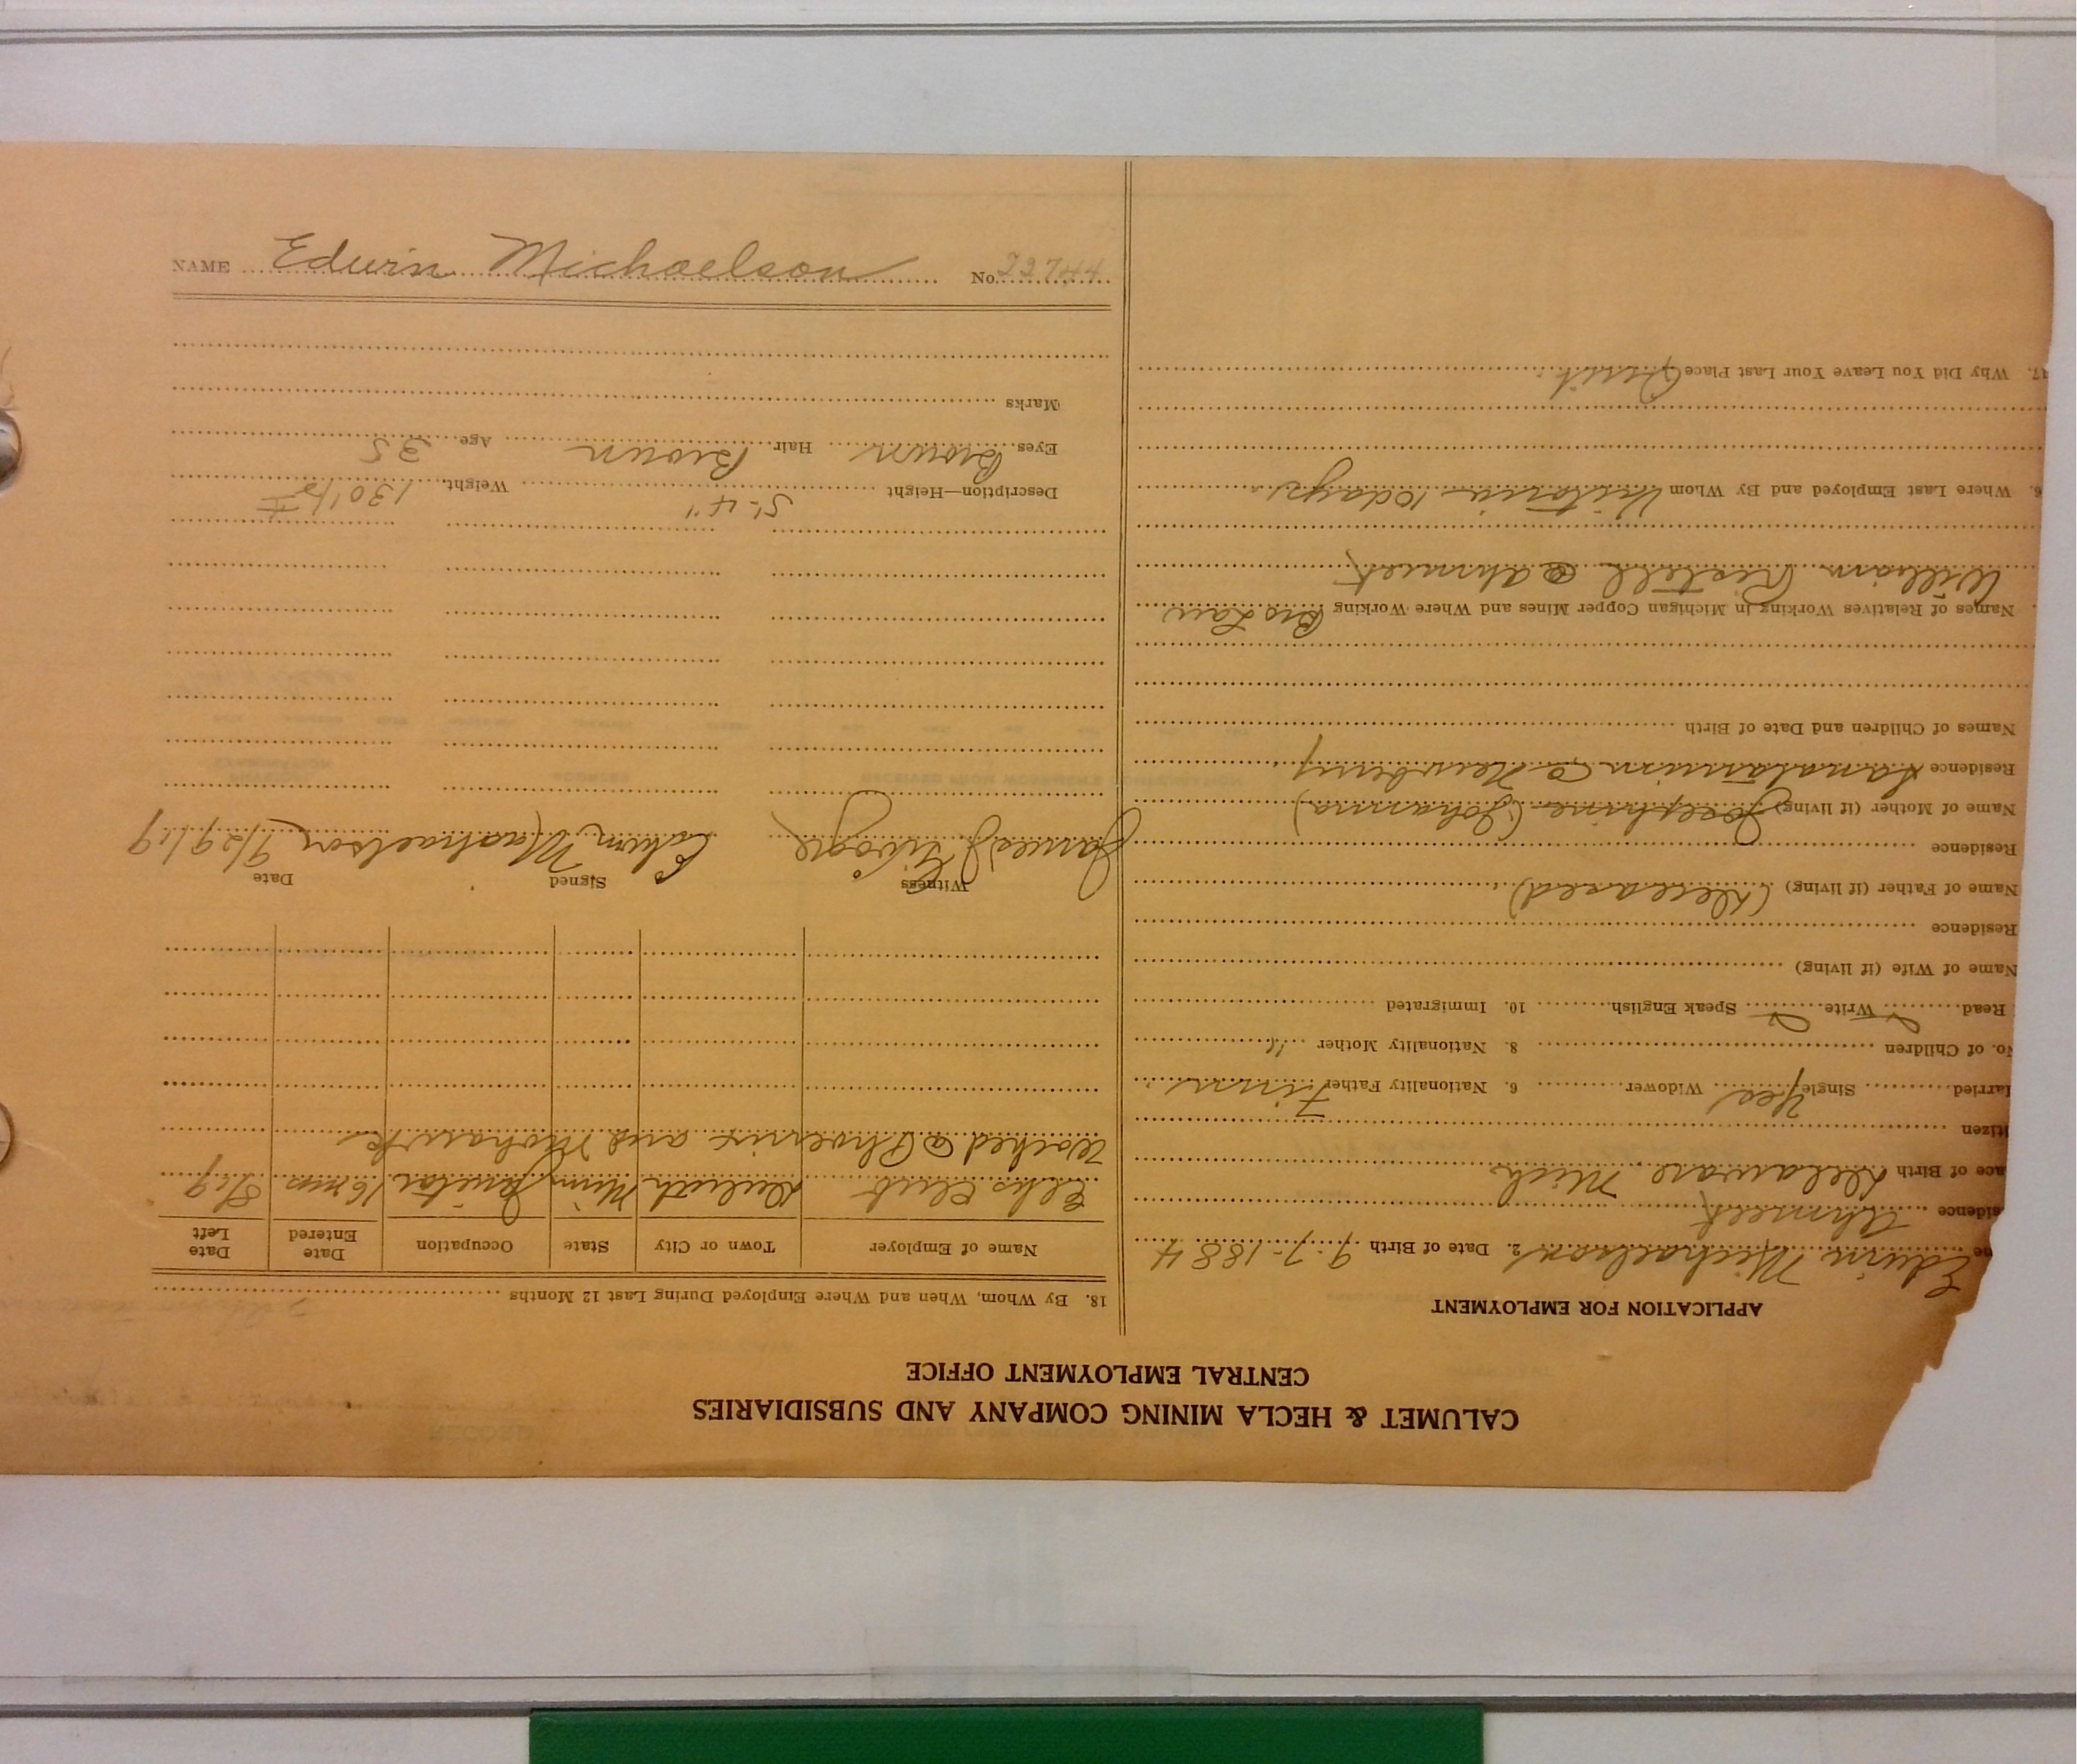 CALUMET & HECLA MINING COMPANY AND SUBSIDIARIES
CENTRAL EMPLOYMENT OFFICE
APPLICATION FOR EMPLOYMENT
me Edwin Michaelson 2. Date of Birth 9-7-1884
sidence Ahmeek
ace of Birth Delaware Mich
itizen
arried Single Yes Widower 6. Nationality Father Finn
No. of Children 8. Nationality Mother "
Read Write Speak English 10. Immigrated
Name of Wife (if living)
Residence
Name of Father (if living) (Deceased)
Residence
Name of Mother (if living) Josephine (Johanna)
Residence Sanatarium @ Newberry
Names of Children and Date of Birth
Names of Relatives Working in Michigan Copper Mines and Where Working Bro Law
William @ Ahmeek
6. Where Last Employed and By Whom Victoria 10 days
17. Why Did You Leave Your Last Place Quit
18. By Whom, When and Where Employed During Last 12 Months
Name of Employer Town or City State Occupation Date Entered Date Left
Elks Club Duluth Minn Janitor 16 mos 8/19
Worked @ Phoenix and Mohawk
Witness Signed Date
James J. Edwin 9/29/19
Description—Height 5'-4" Weight 130 lbs
Eyes Brown Hair Brown Age 35
Marks
NAME Edwin Michaelson No. 22744